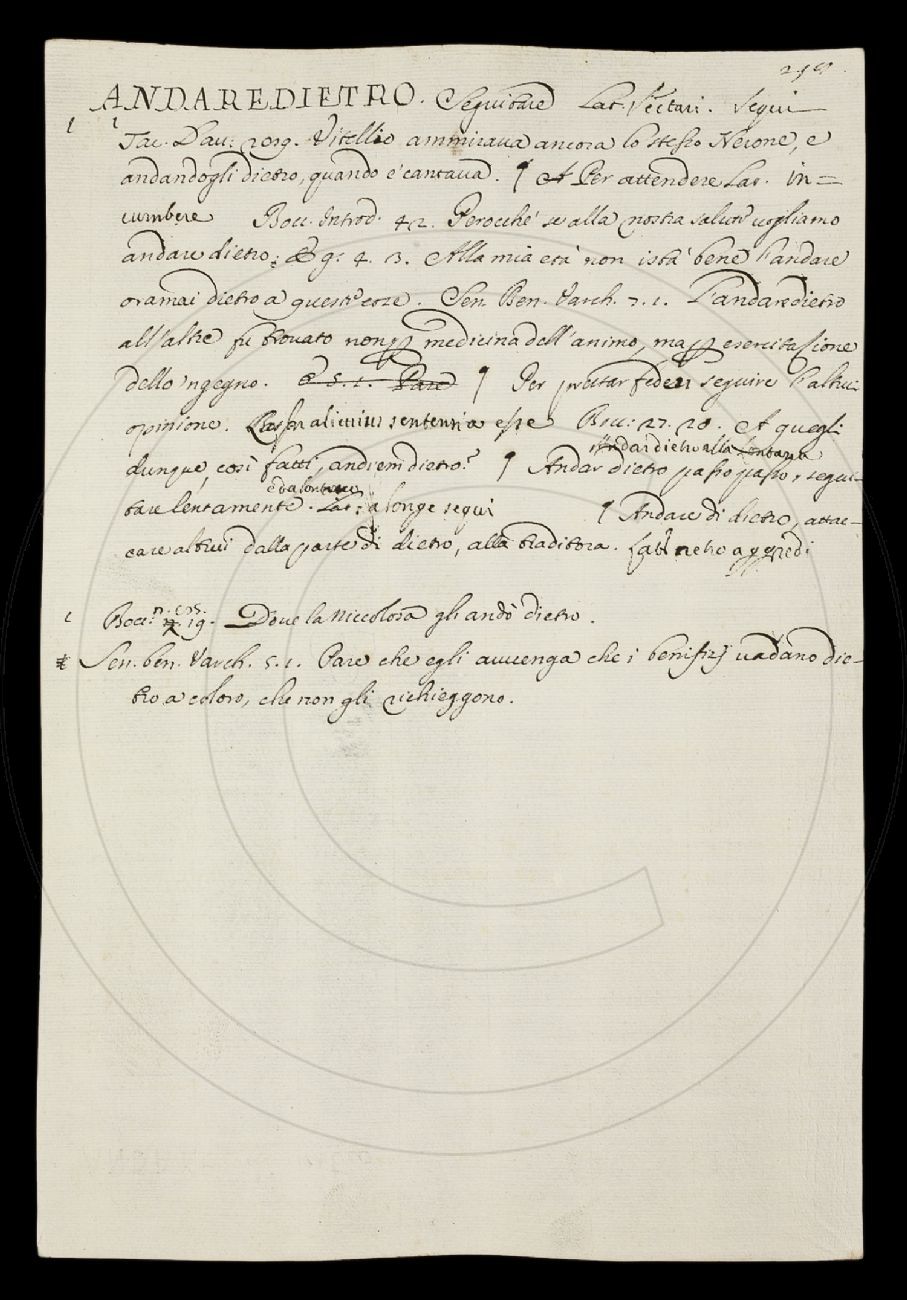 ANDARE DIETRO. Seguitare Lat. Sectari. Segui
Tac. Dav: 2019. Vitellio ammirava ancora lo stesso Nerone, e
andandogli dietro, quando e' cantava. ¶ Per attendere Lat. in=
cumbere Bocc. Introd. 42. Perocchè se alla nostra salute vogliamo
andare dietro: E g: 4. 3. Alla mia età non istà bene l'andare
oramai dietro a queste cose. Sen. Ben. Varch. 7. 1. L'andare dietro
all'altre fu trovato non p medicina dell'animo, ma p esercitazione
dello 'ngegno. E 5. 1. Pare ¶ Per prestar fede seguire l'altrui
opinione. alicuius sententia esse Bocc: 27. 20. A quegli
Andar dietro alla lontana
dunque così fatti, andrem dietro? ¶ Andar dietro passo passo, segui-
e da lontano
tare lentamente. Lat: a longe sequi ¶ Andare di dietro, attac-
care altrui dalla parte di dietro, alla traditora. Lat. retro aggredi
Bocc: n. 19. Dove la Niccolosa gli andò dietro.
Sen. ben. Varch. 5. 1. Pare che egli avvenga che i benifizj vadano die-
tro a coloro, che non gli richieggono.